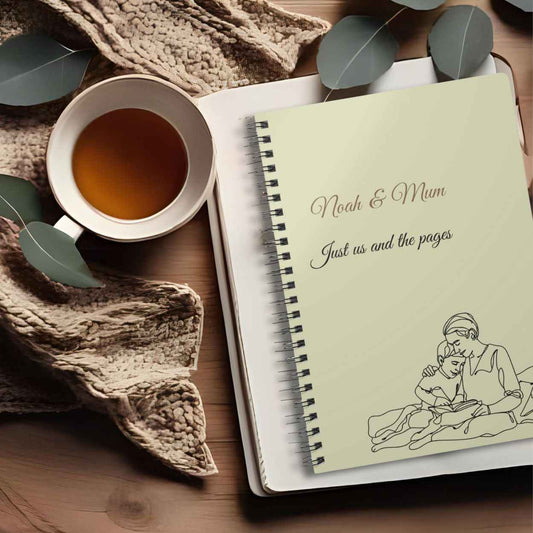 Noah & Mum
Just us and the pages